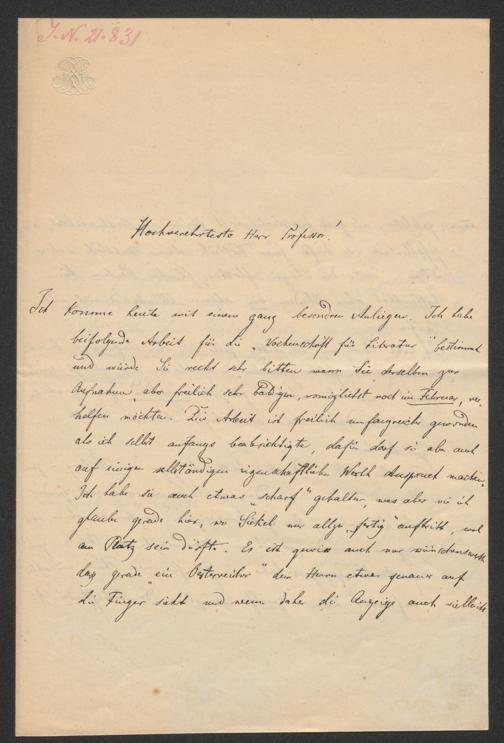 J.N. 21.831
Hochverehrtester Herr Professor!
Ich komme heute mit einem ganz besonderen Anliegen. Ich habe
beifolgende Arbeit für die "Wochenschrift für Litteratur" bestimmt
und würde Sie recht sehr bitten wenn Sie derselben zur
Aufnahme, aber freilich sehr baldigen, womöglichst noch im Februar, ver-
helfen möchten. Die Arbeit ist freilich umfangreicher geworden
als ich selbst anfangs beabsichtigte, dafür darf sie aber auch
auf einigen selbständigen Werth Anspruch machen.
Ich habe sie auch etwas "scharf" gehalten was aber wie ich
glaube gerade hier, wo nur allzu "fertig" auftritt, wol
am Platz sein dürfte. Es ist gewiss auch nur wünschenswerth
daß gerade "ein Österreicher" dem Herrn etwas genauer auf
die Finger sieht und wenn daher die Anzeige auch vielleicht